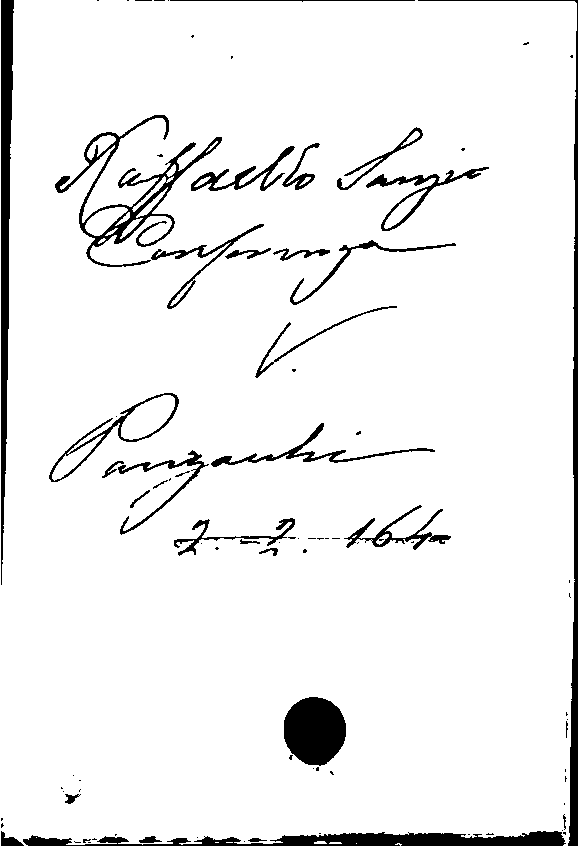 Raffaello Sanzio
Conferenza
V.
Panzacchi
2. -2. 164